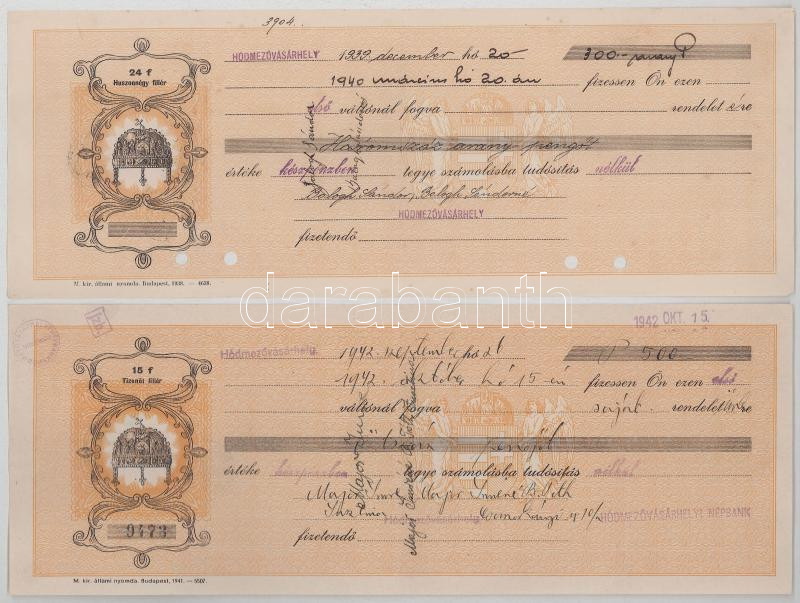 3904.
24 f
Huszonnégy fillér
HÓDMEZŐVÁSÁRHELY 1939. december hó 20-
300.- arany P
1940 március hó 20.-án fizessen Ön ezen
első váltónál fogva rendelet
Háromszáz arany pengőt
értéke készpénzben tegye számolásba tudósítás nélkül
Balogh Sándor, Balogh Sándorné
HÓDMEZŐVÁSÁRHELY
fizetendő
M. kir. állami nyomda. Budapest, 1938. — 4638.
darabanth
1942 OKT. 15.
15 f
Tizenöt fillér
Hódmezővásárhely, 1942. szeptember hó
P 500
1942. október hó 15 én fizessen Ön ezen első
váltónál fogva rendelet
pengőt
értéke készpénzben tegye számolásba tudósítás nélkül
Major Imre Major Imréné B. Tóth
Hódmezővásárhely HÓDMEZŐVÁSÁRHELYI NÉPBANK
fizetendő
9473
M. kir. állami nyomda. Budapest, 1941. — 5507.